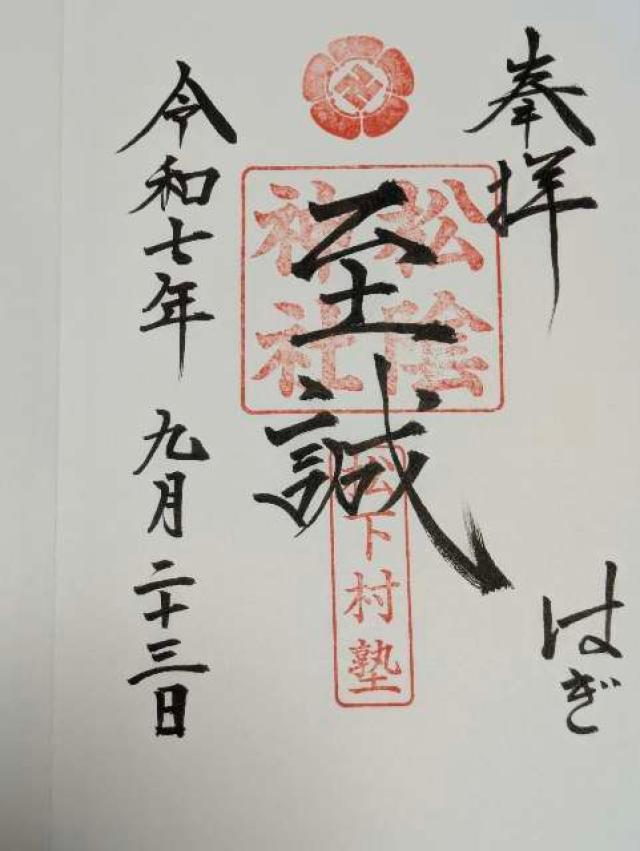 奉拝
はぎ
松陰神社
至誠
松下村塾
令和七年 九月 二十三日